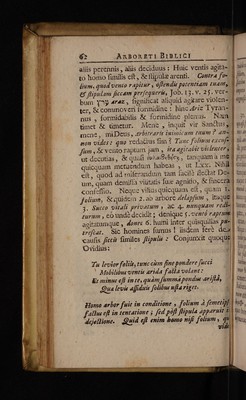 62 ARBORETI BIBLICI
aliis perennis, aliis deciduus : Huic ventis agita-
to homo similis est, & stipulæ arenti. Contra fo-
lium, quod vento rapitur, ostendis potentiam tuam,
& stipulam siccam persequeris, Job. 13. v. 25. ver-
bum ערץ araz, significat aliquid agitare violen-
ter, & commoveri formidine : hinc Ariz Tyran-
nus, formidabilis & formidine plenus. Nam
timet & timetur. Mene, inquit vir Sanctus,
mene, mi Deus, arbitraris inimicum tuum ? an-
non vides : quo redactus sim ? Tuus folium exces-
sum, & vento raptum jam,
ut decutias, & quasi tanquam à me
quicquam metuendum habeas, ut Lxx.
est, quod ad miserandum tam facilè flectat De-
um, quam demissa virtutis suæ agnitio, & sincera
confessio. Neque vilius quicquam est, quam 1.
folium, & quidem 2. ab arbore delapsum, itaque
3. Succo vitali privatum ac 4. nunquam redi-
turum, eò unde decidit ; denique 5. vento raptum
agitatumque, donec 6. humi inter quisquilias pu-
trescat. Sic homines sumus ! iisdem ferè de
causis sicco similes stipulæ : Conjunxit quoque
Ovidius :
Tu levior foliis, tunc cùm sine pondere succi
Mobilibus ventis arida facta volant :
Et minus est in te, quàm summâ pondus aristâ,
Quæ levis assiduis solibus usta riget.
Homo arbor fuit in conditione , folium à semetipso
factus est in tentatione ; sed pòst stipula apparuit in
dejectione. Quid est enim homo nisi folium, qui